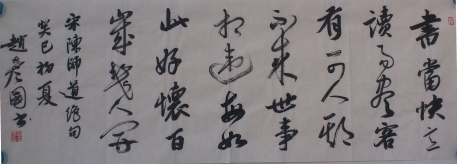 書當快意
讀易盡客
有可人期
不來世事
相違每如
此好懷百
歲幾人開
宋陳師道絕句
癸巳初夏
趙彥國書